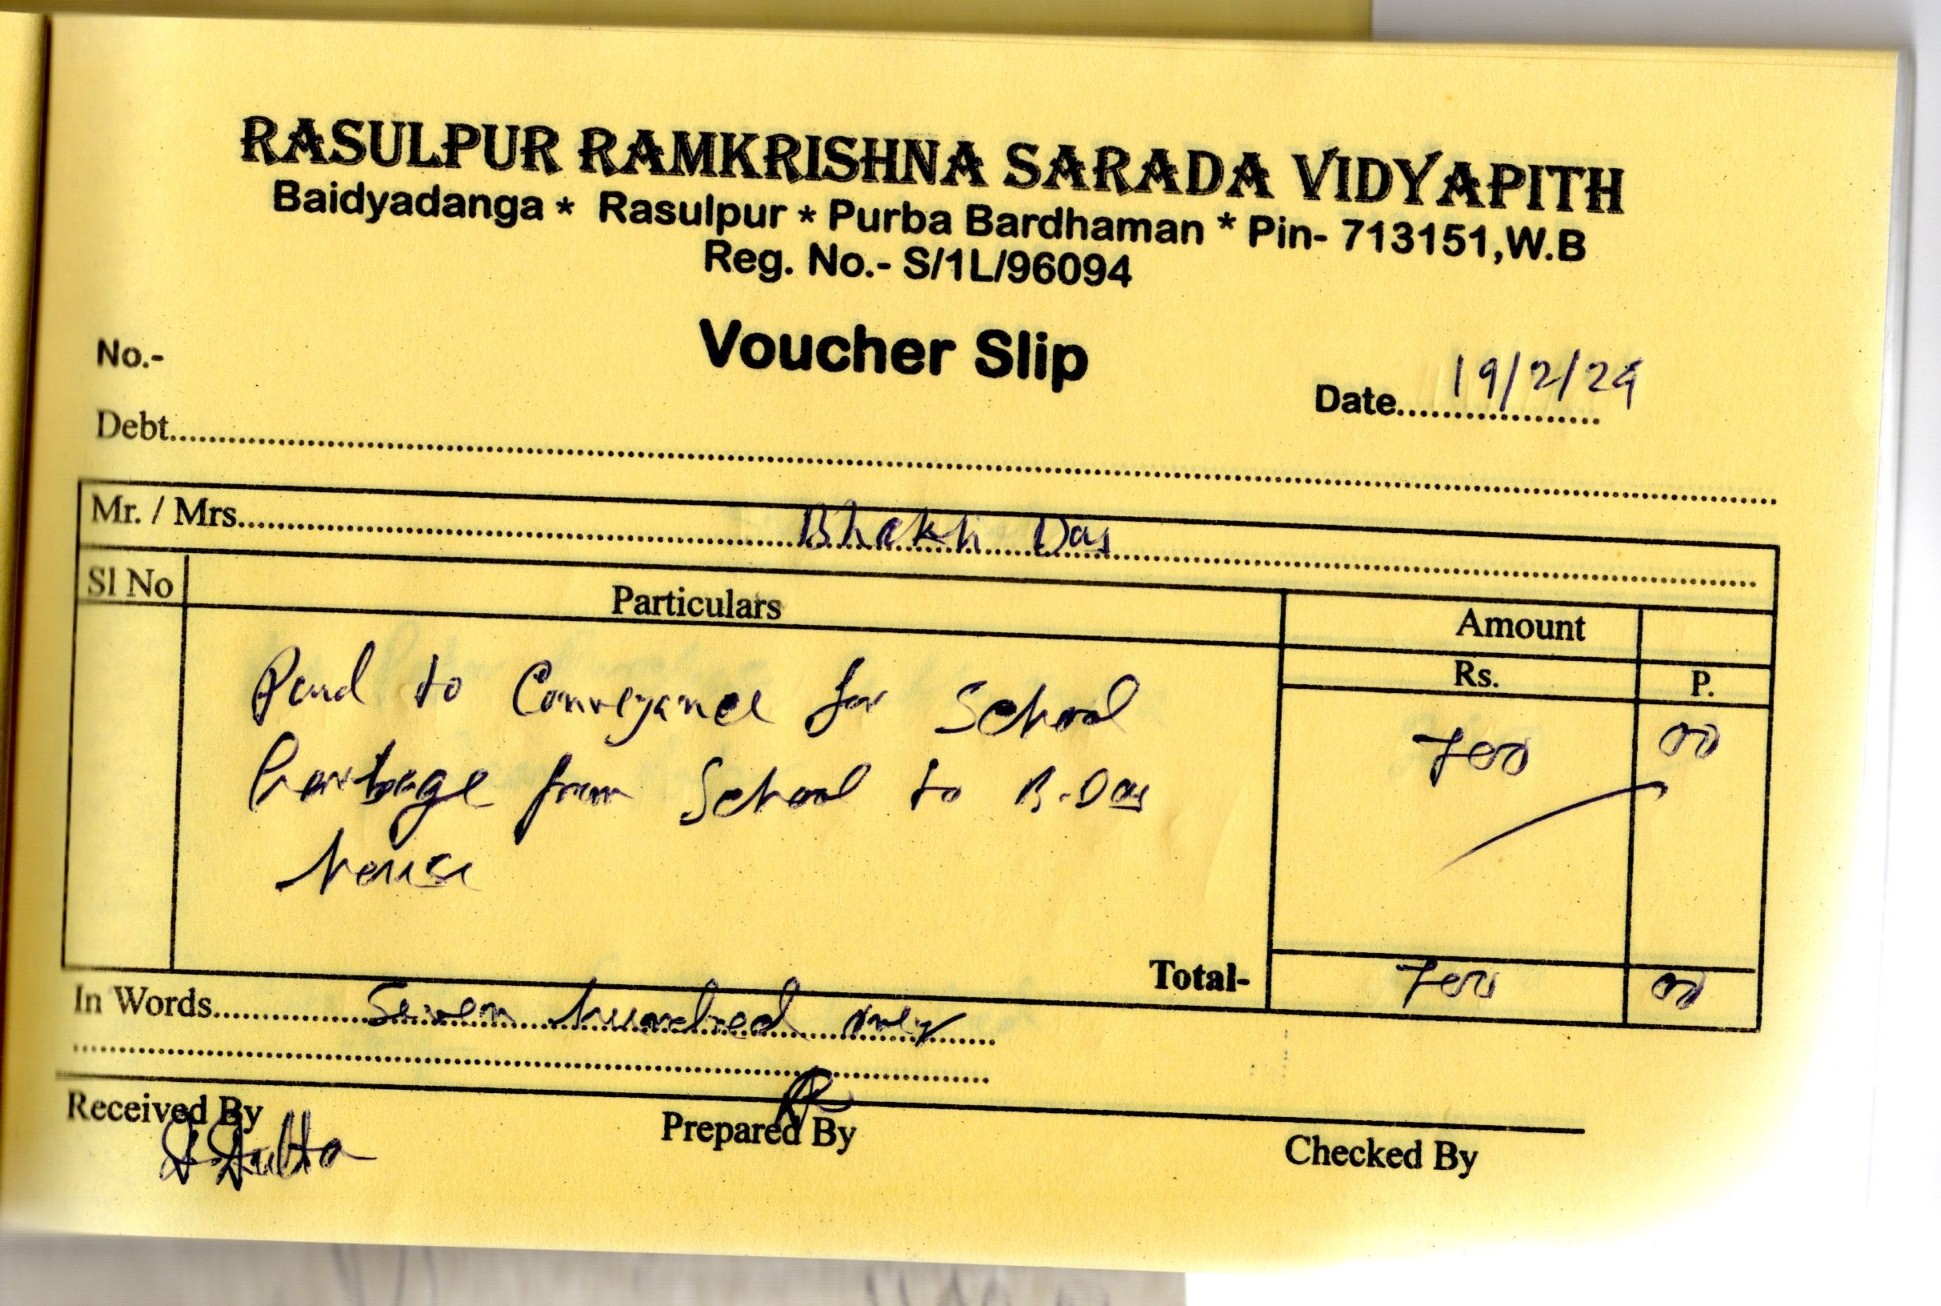 RASULPUR RAMKRISHNA SARADA VIDYAPITH
Baidyadanga * Rasulpur * Purba Bardhaman * Pin- 713151,W.B
Reg. No.- S/1L/96094
Voucher Slip
No.-
Date.................. 19/2/24
Debt......................................................
Mr. / Mrs. Bhakti Das
Sl No Particulars Amount
Rs. P.
Paid to Conveyance for School 700 00
garbage from School to B. Das
house
Total- 700 00
In Words Seven hundred only
Received By Prepared By Checked By